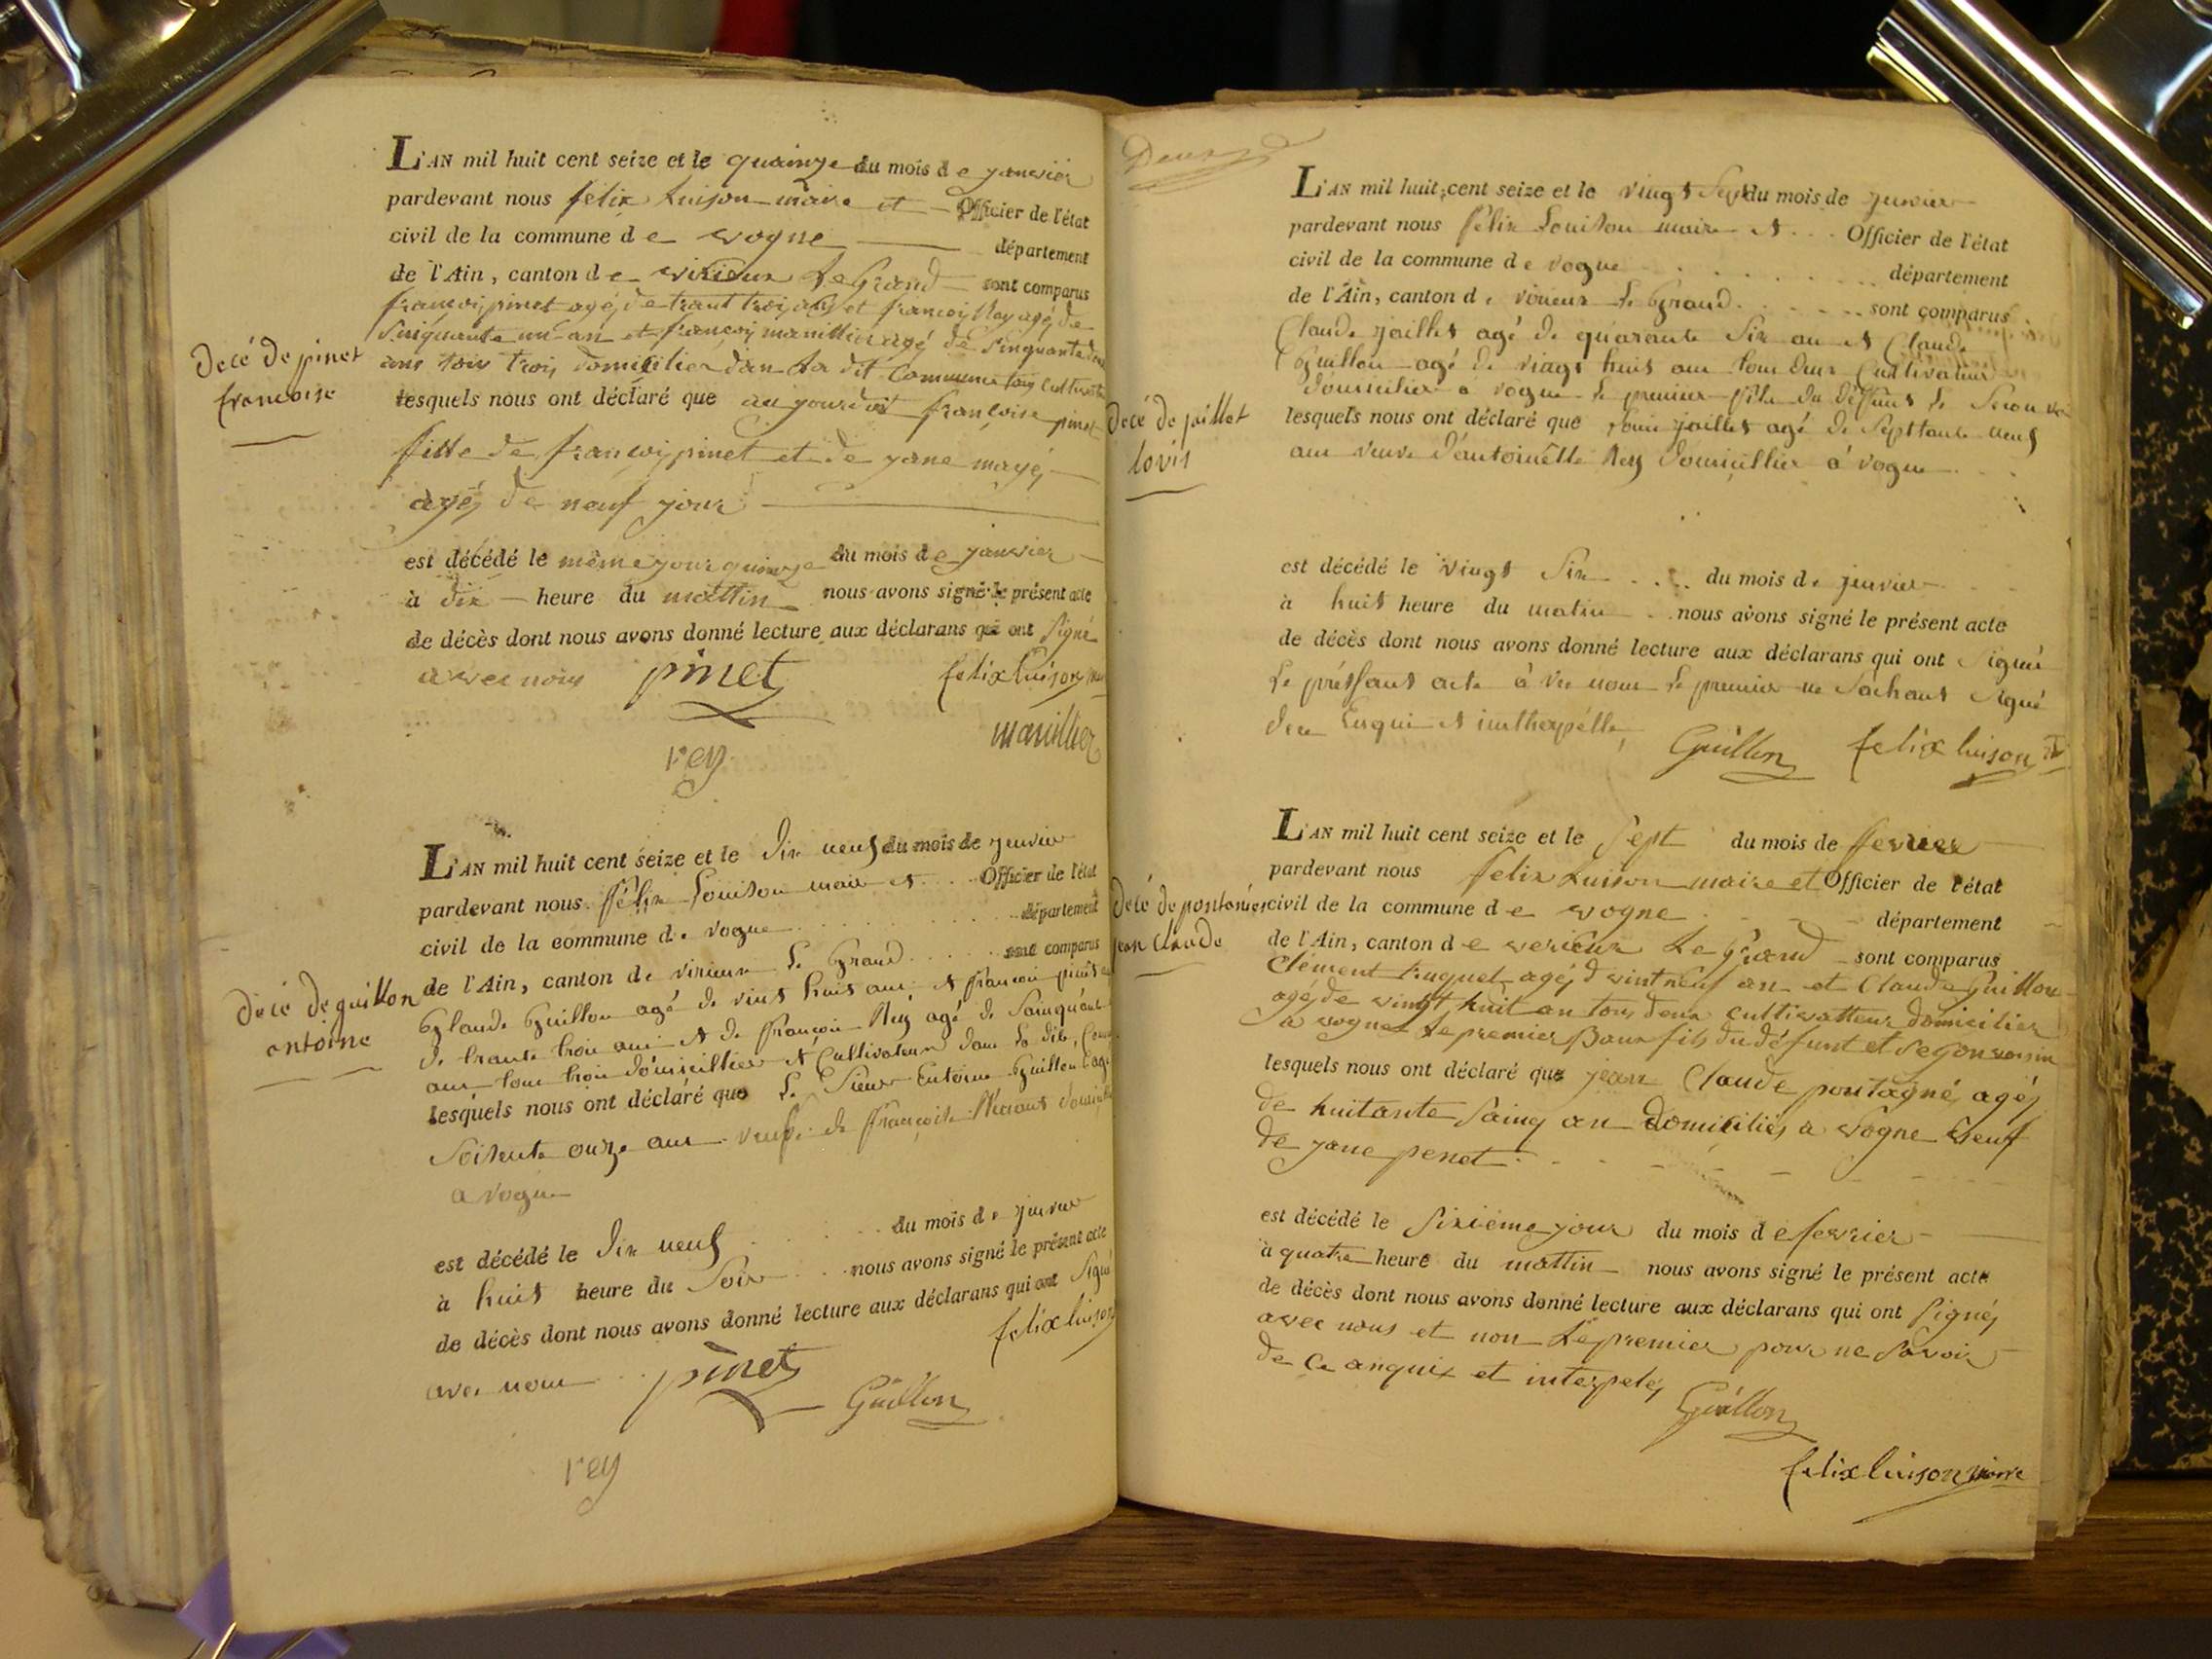 L'AN mil huit cent seize et le quainze du mois d e janvier
pardevant nous félix Luison maire et Officier de l'état
civil de la commune d e vogne département
de l'Ain, canton d e virieux Le Grand sont comparus
françoij pinet agé de trant troij ans et françoij Rey agé de
Sinquante un an et françoij manillier agé de Sinquante
ans tous trois domicilier dan La dit Commune tous
Decé de pinet
francoise
lesquels nous ont déclaré que aujourduit françoise pinet
fille de françoij pinet et de jane
agéj de neuf jour
est décédé le même jour quinze du mois d e janvier
à dix heure du mattin nous avons signé le présent acte
de décès dont nous avons donné lecture aux déclarans qui ont Signé
avec nous pinet felix luison
manillier
rey
L'AN mil huit cent seize et le Dix neuf du mois de janvier
pardevant nous félix Louison maire et Officier de l'état
civil de la commune d e vogne département
de l'Ain, canton d e virieux Le Grand sont comparus
Glaude Guillon agé de vint huit ans et françois pinet
de trante trois ans et de françois Rey agé de Sainquante
ans tous trois domicillier et Cultivateur dans La dite
Décé de guillon
antoine
lesquels nous ont déclaré que Le Sieur Entoine Guillon agé
Soisente onze ans veuf de françoise
a vogne
est décédé le Dix neuf du mois d e janvier
à huit heure du Soir nous avons signé le présent acte
de décès dont nous avons donné lecture aux déclarans qui ont Signé
avec nous pinet felix luison
Guillon
rey
L'AN mil huit cent seize et le vingt Sept du mois de janvier
pardevant nous félix Louison maire et Officier de l'état
civil de la commune d e vogne département
de l'Ain, canton d e virieux Le Grand sont comparus
Claude jaillet agé de quarante Six ans et Claude
Guillon agé de vingt huit ans tous deux Cultivateur
domicilier a vogne Le premier fils du deffunt Le
Decé de jaillet
lovis
lesquels nous ont déclaré que Louis jaillet agé de Septtante neuf
ans veuve d'antoinette Rey domicillier a vogne
est décédé le vingt Six du mois d e janvier
à huit heure du matin nous avons signé le présent acte
de décès dont nous avons donné lecture aux déclarans qui ont Signé
Le préssant acte avec nous Le premier ne Sachant Signé
dece Enquis et intherpéllé
Guillon felix luison
L'AN mil huit cent seize et le Sept du mois de fevrier
pardevant nous felix Luison maire et Officier de l'état
civil de la commune d e vogne département
de l'Ain, canton d e verieux Le Grand sont comparus
Clément agéj d vint neuf an et Claude Guillon
agéj de vingt huit an tous deux cultivatteur domicilier
a vogne Le premier Baux fils du défunt et Segon voisin
Decé de pontanier
jean claude
lesquels nous ont déclaré que jean Claude pontagné agéj
de huitante Sainq an domiciliéj a vogne veuf
de jane penet
est décédé le Sixième jour du mois d e fevrier
à quatre heure du mattin nous avons signé le présent acte
de décès dont nous avons donné lecture aux déclarans qui ont Signéj
avec nous et non Le premier pour ne Savoir
de Ce anquix et interpeléj
Guillon
felix luison maire